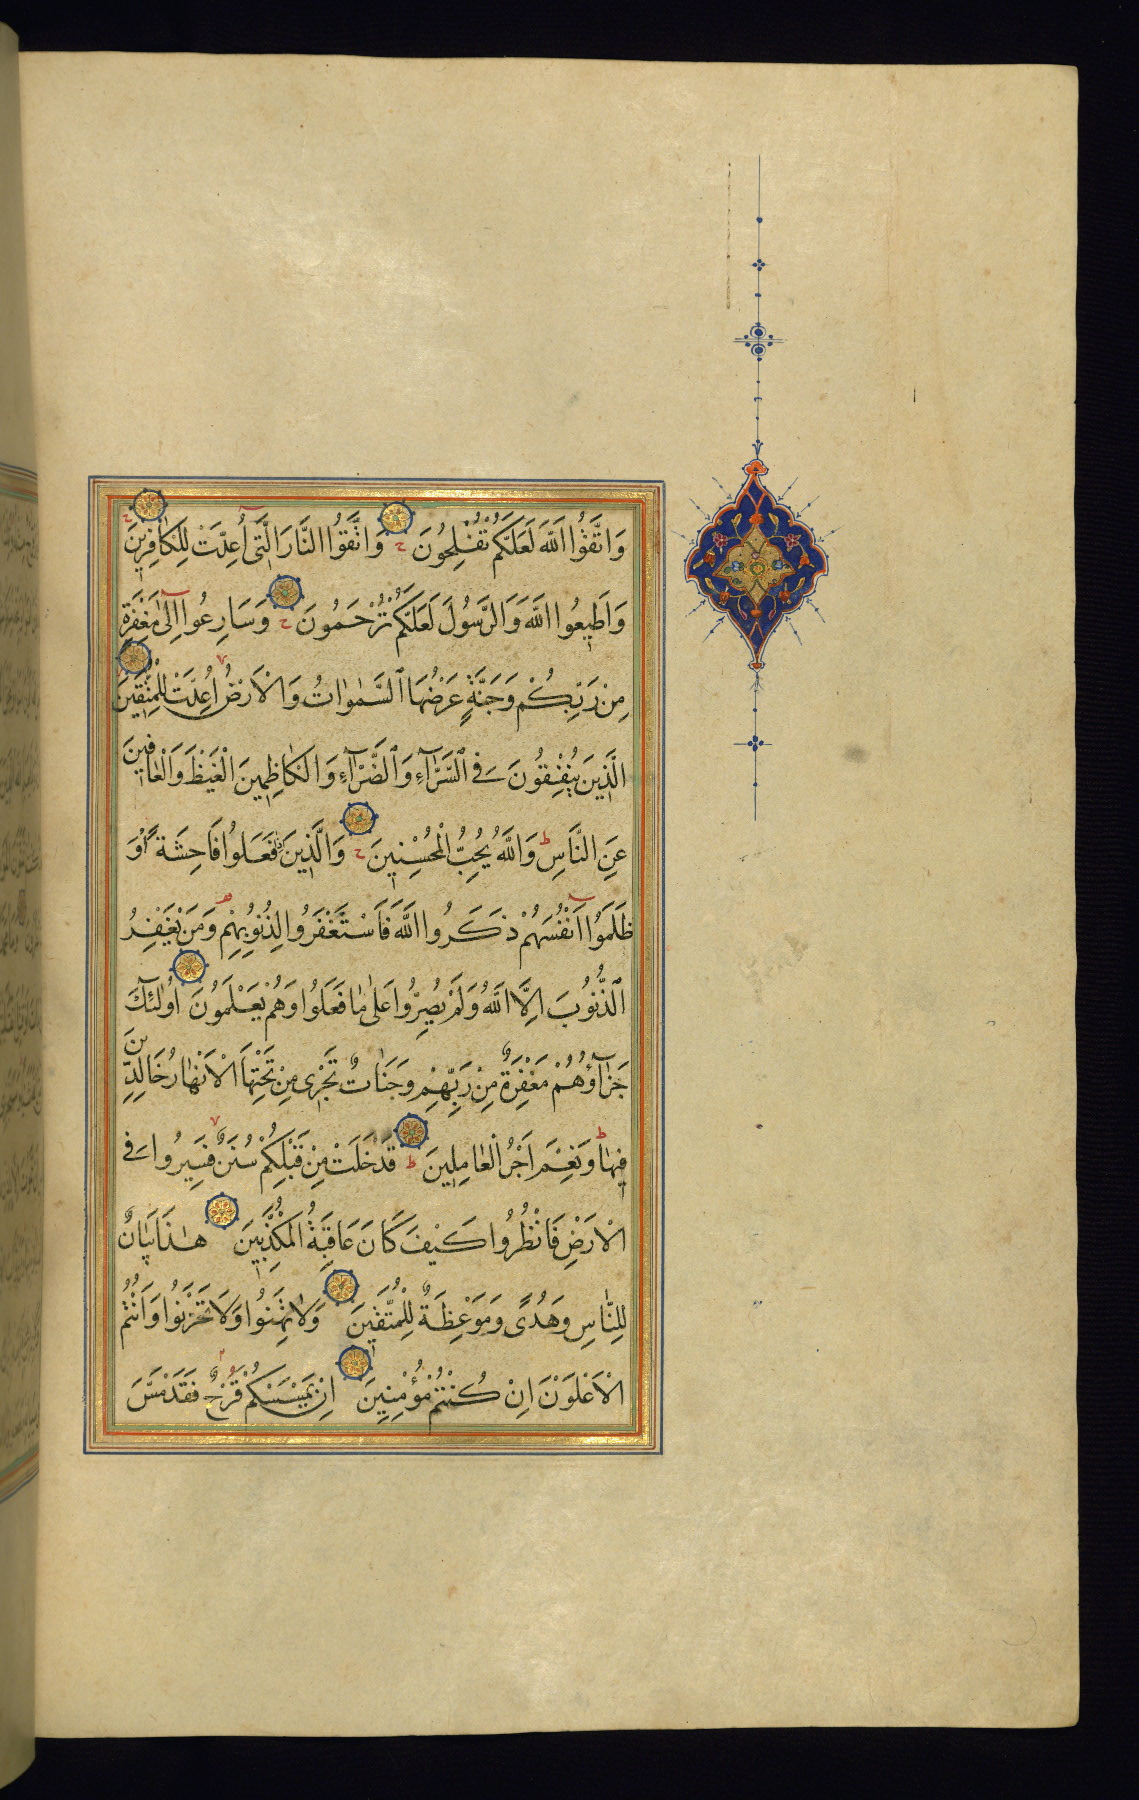 وَاتَّقُوا اللَّهَ لَعَلَّكُمْ تُفْلِحُونَ ح وَاتَّقُوا النَّارَ الَّتِى أُعِدَّتْ لِلْكَافِرِينَ ح
وَاَطِيعُوا اللَّهَ وَالرَّسُولَ لَعَلَّكُمْ تُرْحَمُونَ ح وَسَارِعُوا اِلٰى مَغْفِرَةٍ
مِنْ رَبِّكُمْ وَجَنَّةٍ عَرْضُهَا السَّمٰوَاتُ وَالْاَرْضُ اُعِدَّتْ لِلْمُتَّقِينَ
الَّذِينَ يُنْفِقُونَ فِى السَّرَّآءِ وَالضَّرَّآءِ وَالْكَاظِمِينَ الْغَيْظَ وَالْعَافِينَ
عَنِ النَّاسِ ط وَاللَّهُ يُحِبُّ الْمُحْسِنِينَ ح وَالَّذِينَ اِذَا فَعَلُوا فَاحِشَةً اَوْ
ظَلَمُوا اَنْفُسَهُمْ ذَكَرُوا اللَّهَ فَاسْتَغْفَرُوا لِذُنُوبِهِمْ وَمَنْ يَغْفِرُ
الذُّنُوبَ اِلَّا اللَّهُ وَلَمْ يُصِرُّوا عَلٰى مَا فَعَلُوا وَهُمْ يَعْلَمُونَ اُولٰئِكَ
جَزَآؤُهُمْ مَغْفِرَةٌ مِنْ رَبِّهِمْ وَجَنَّاتٌ تَجْرِى مِنْ تَحْتِهَا الْاَنْهَارُ خَالِدِينَ
فِيهَا ط وَنِعْمَ اَجْرُ الْعَامِلِينَ ط قَدْ خَلَتْ مِنْ قَبْلِكُمْ سُنَنٌ فَسِيرُوا فِى
الْاَرْضِ فَانْظُرُوا كَيْفَ كَانَ عَاقِبَةُ الْمُكَذِّبِينَ هٰذَا بَيَانٌ
لِلنَّاسِ وَهُدًى وَمَوْعِظَةٌ لِلْمُتَّقِينَ وَلَا تَهِنُوا وَلَا تَحْزَنُوا وَاَنْتُمُ
الْاَعْلَوْنَ اِنْ كُنْتُمْ مُؤْمِنِينَ اِنْ يَمْسَسْكُمْ قَرْحٌ فَقَدْ مَسَّ